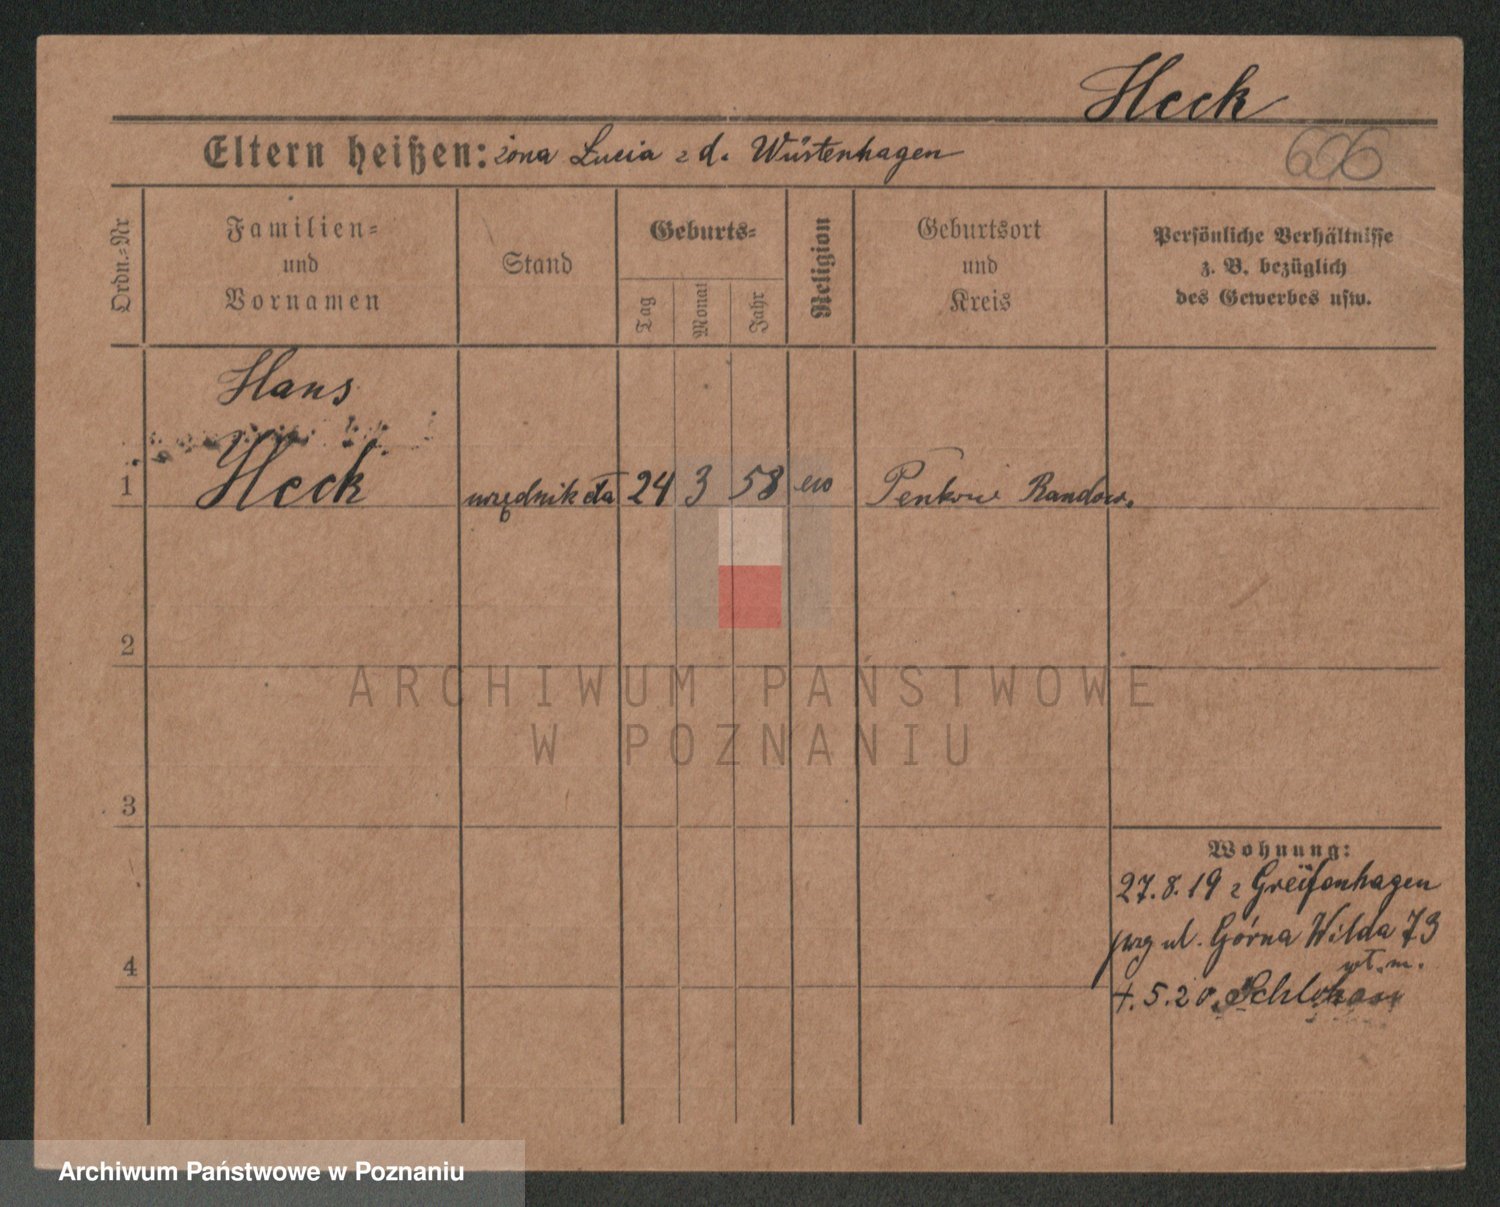 Heck
Eltern heißen: żona Lucia z d. Wüstenhagen
696
Ordn.=Nr
Familien=
und
Vornamen
Stand
Geburts=
Tag
Monat
Jahr
Religion
Geburtsort
und
Kreis
Persönliche Verhältnisse
z. B. bezüglich
des Gewerbes usw.
Hans
1 Heck urzędnik cła 24 3 58 ew Penkow Randow.
2
ARCHIWUM PAŃSTWOWE
W POZNANIU
3
Wohnung:
27.8.19 z Greifenhagen
prz ul. Górna Wilda 73
wł. m.
4
5.20
Archiwum Państwowe w Poznaniu